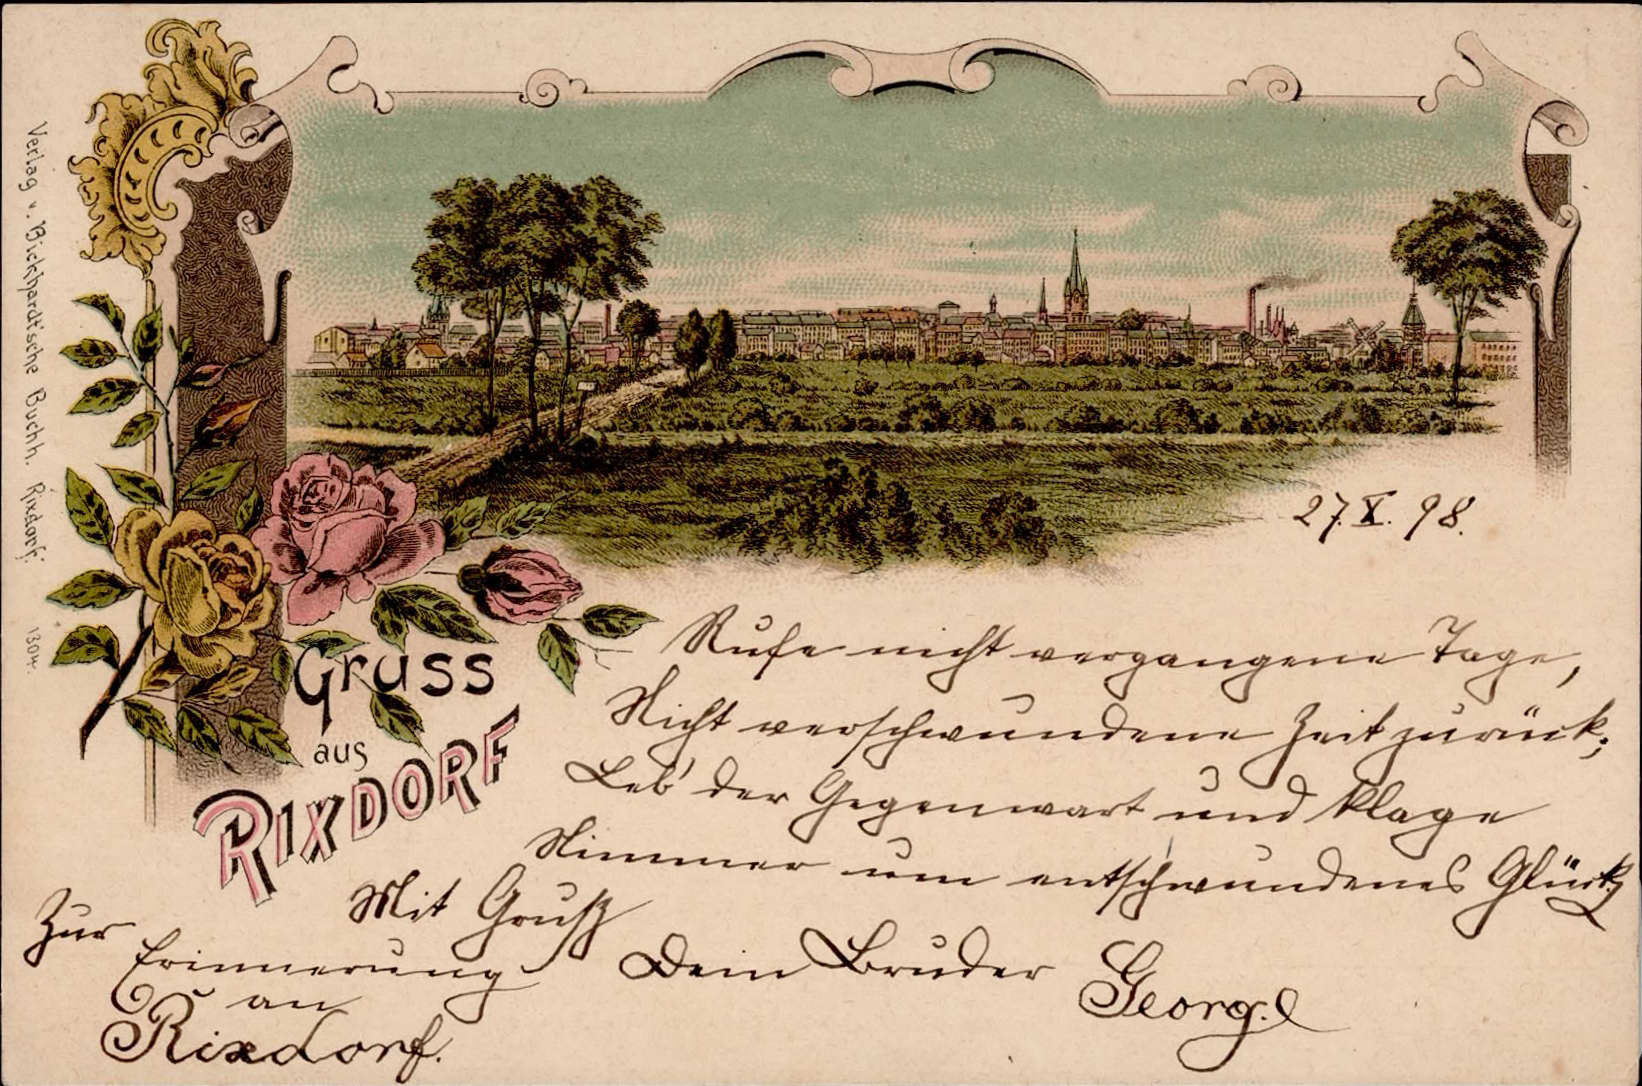 Verlag v. Bickhardt'sche Buchh. Rixdorf. 1304.
27.X.98.
Gruss
aus
RIXDORF
Rufe nicht vergangene Tage,
Nicht verschwundene Zeit zurück;
Leb' der Gegenwart und klage
Nimmer um entschwundenes Glück
Mit Gruß
Dein Bruder Georg.
Zur
Erinnerung
an
Rixdorf.